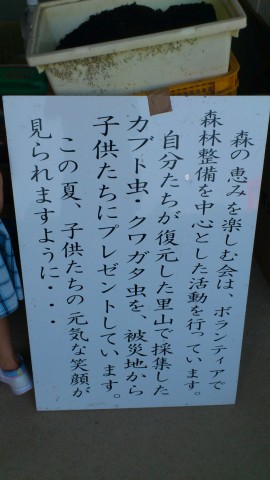 森の恵みを楽しむ会は、ボランティアで
森林整備を中心とした活動を行っています。
自分たちが復元した里山で採集した
カブト虫・クワガタ虫を、被災地から
子供たちにプレゼントしています。
この夏、子供たちの元気な笑顔が
見られますように・・・